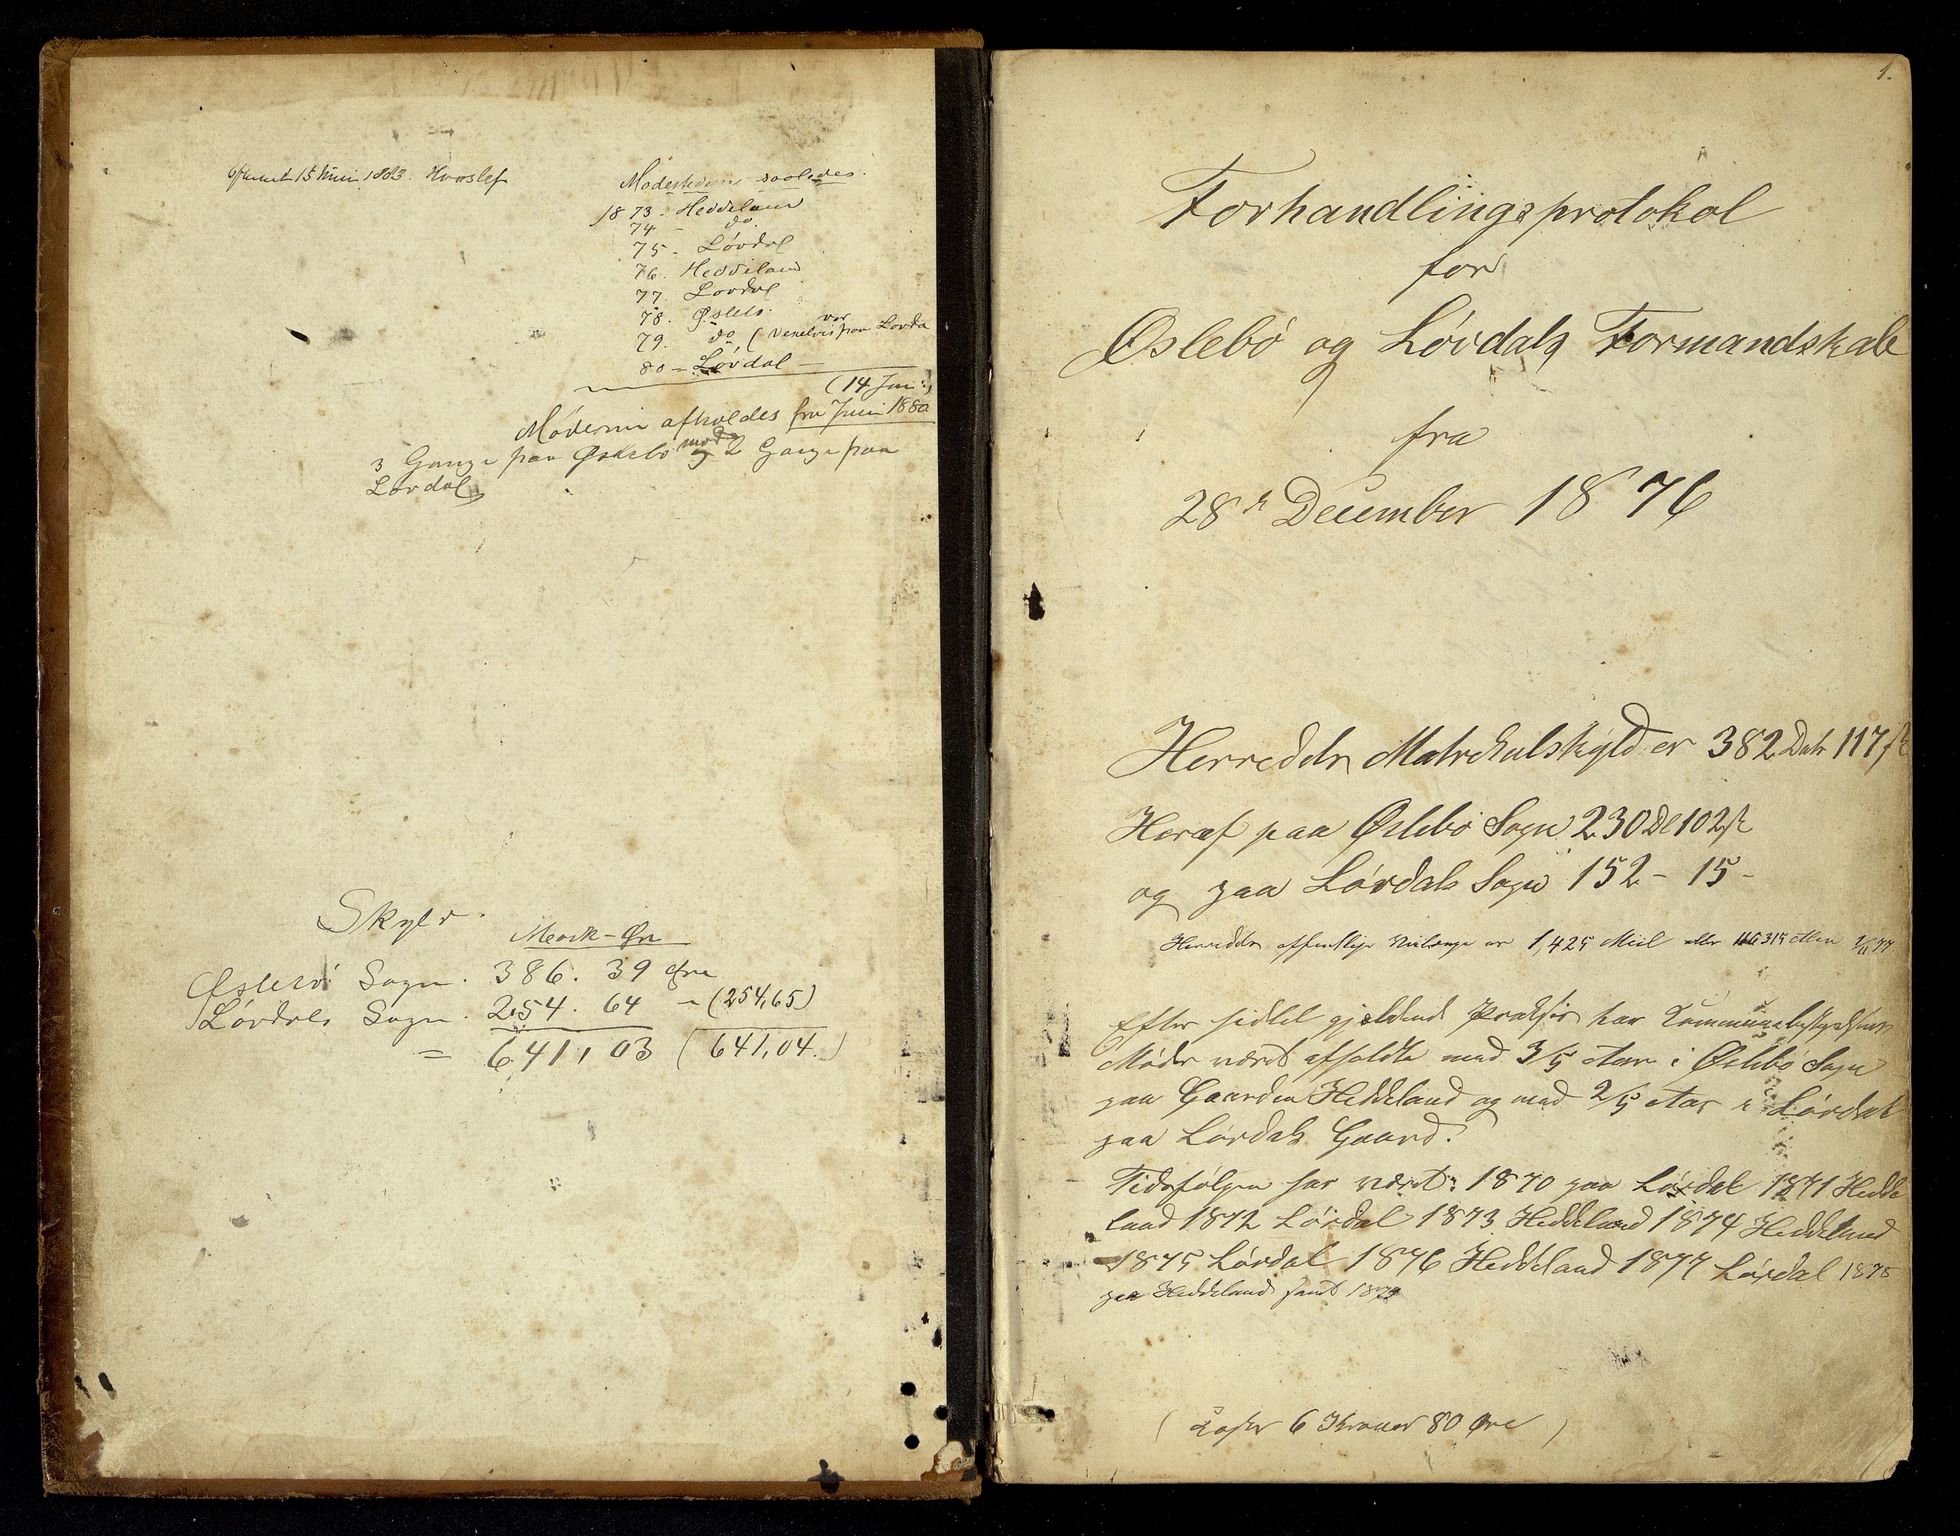 15 Juni 1883. Hvoslef
Mødestedene saaledes.
1873 - Heddeland
74 - do
75 - Løvdal
76. Heddeland
77. Løvdal
78. Øslebø.
79. do (vexelvis var paa Løvda
80 - Løvdal -
(14 Juni)
Møderne afholdes fra Juni 1880
3 Gange paa Øslebø mod 2 Gange paa
Løvdal
Skyld.
Mark - Øre
Øslebø Sogn. 386. 39 Øre
Løvdals Sogn. 254. 64 - (254,65)
= 641,03 (641,04.)
1.
Forhandlingsprotokol
for
Øslebø og Løvdals Formandskab
fra
28de December 1876
Herredets Matrikulskyld er 382 Dalr 117 s
Heraf paa Øslebø Sogn 230 Dl 102 s
og paa Løvdals Sogn 152 - 15 -
Herredets offentlige Veilængde er 1,425 Miil eller 315 Alen 77.
Efter sidst gjeldende Praksis har Kommunebestyrelsens
Møder været afholdte med 3/5 Aar i Øslebø Sogn
paa Gaarden Heddeland og med 2/5 Aar i Løvdal
paa Løvdals Gaard.
Tidsfølgen har været: 1870 paa Løvdal 1871 Hedde
land 1872 Løvdal 1873 Heddeland 1874 Heddeland
1875 Løvdal 1876 Heddeland 1877 Løvdal 1878
paa Heddeland samt 1879
( Koster 6 Kroner 80 Øre )